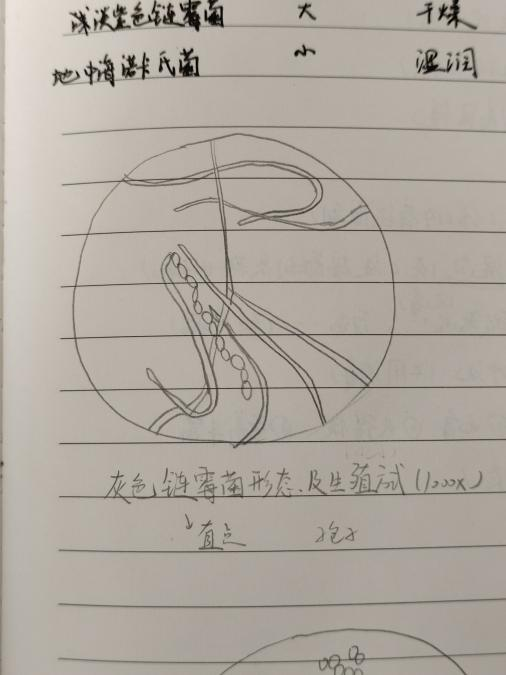 浅淡紫色链霉菌 大 干燥
地中海诺卡氏菌 小 湿润
灰色链霉菌形态及生殖试(1000x)
直点 孢子